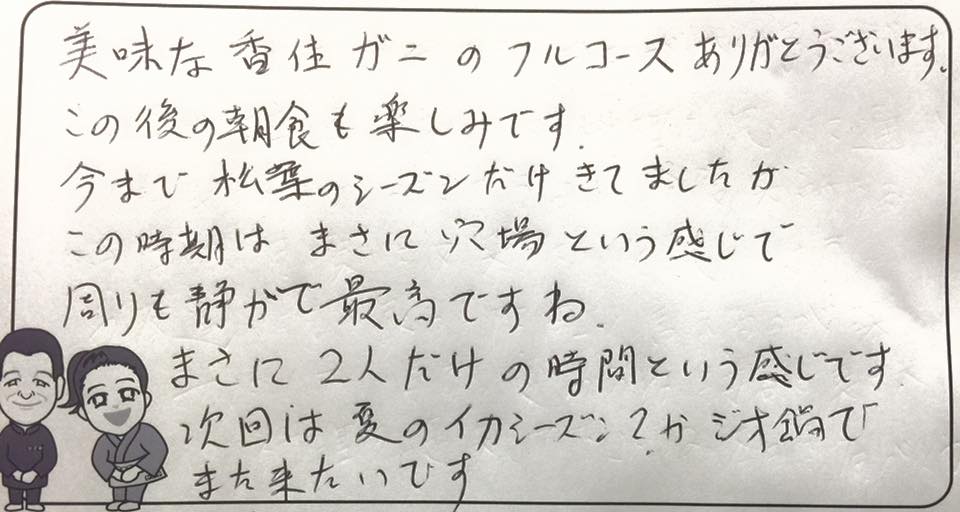 美味な香住ガニのフルコースありがとうございます。
この後の朝食も楽しみです.
今まで松葉のシーズンだけきてましたが
この時期はまさに穴場という感じで
周りも静かで最高ですね.
まさに2人だけの時間という感じです.
次回は夏のイカシーズン?かジオ鍋で
また来たいです